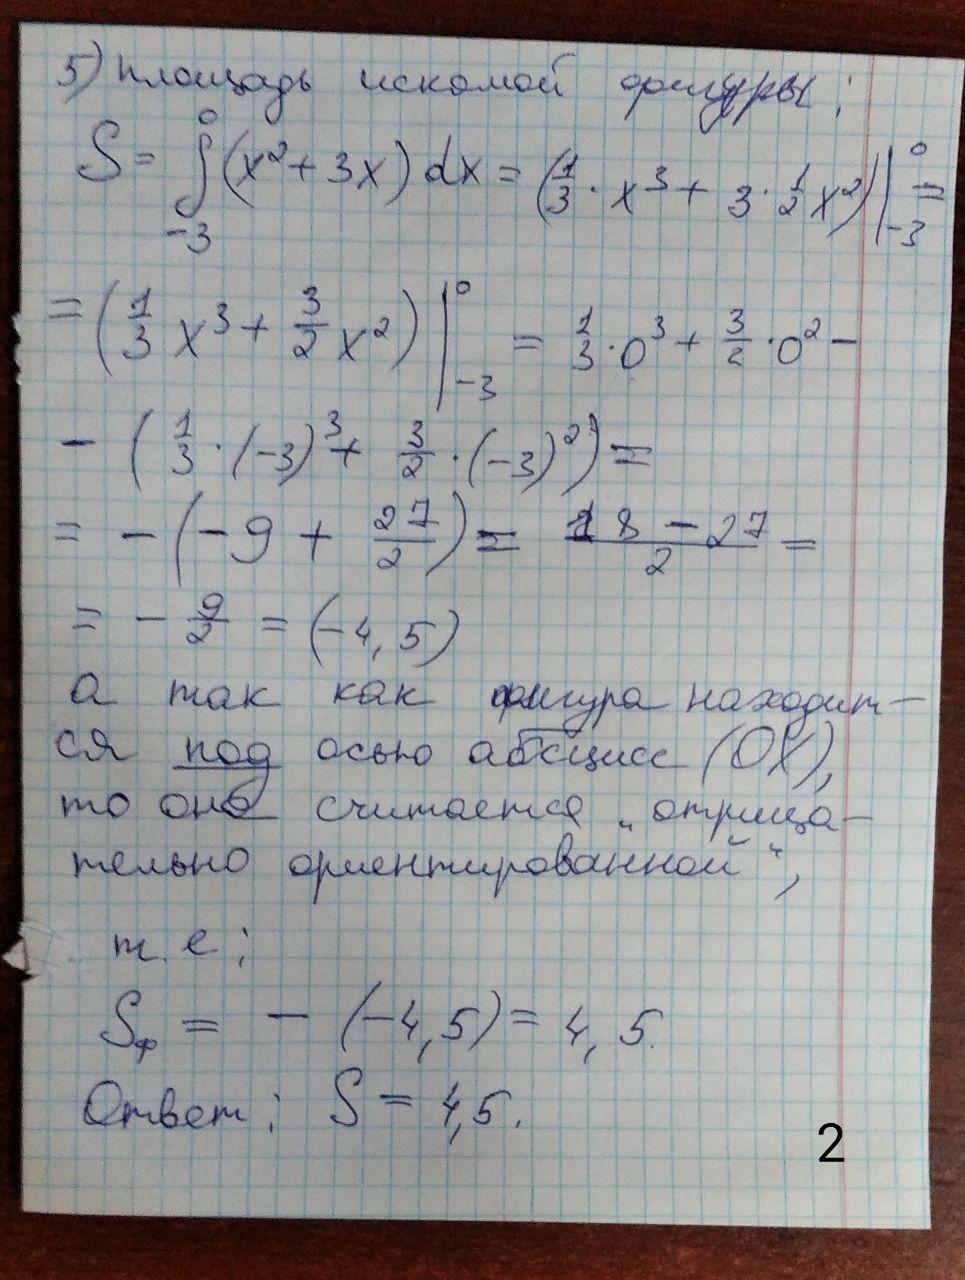 5) Площадь искомой фигуры:
S = ∫₋₃⁰ (x² + 3x) dx = (1/3 · x³ + 3 · 1/2 x²) |₋₃⁰ =
= (1/3 x³ + 3/2 x²) |₋₃⁰ = 1/3 · 0³ + 3/2 · 0² -
- (1/3 · (-3)³ + 3/2 · (-3)²) =
= - (-9 + 27/2) = (18 - 27)/2 =
= - 9/2 = (-4,5)
а так как фигура находит-
ся под осью абсцисс (OX),
то она считается „отрица-
тельно ориентированной“,
т.е:
Sф = - (-4,5) = 4,5.
Ответ: S = 4,5.
2